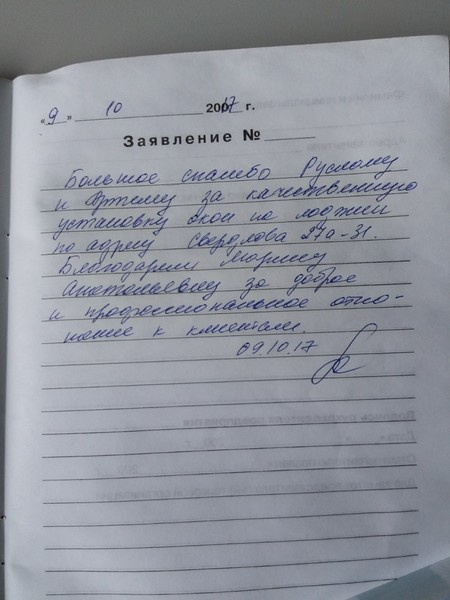 «9» 10 2017 г.
Заявление №
Большое спасибо Руслану
и Артему за качественную
установку окон на лоджии
по адресу Свердлова 27а-31.
Благодарим Марину
Анатольевну за доброе
и профессиональное отно-
шение к клиентам.
09.10.17